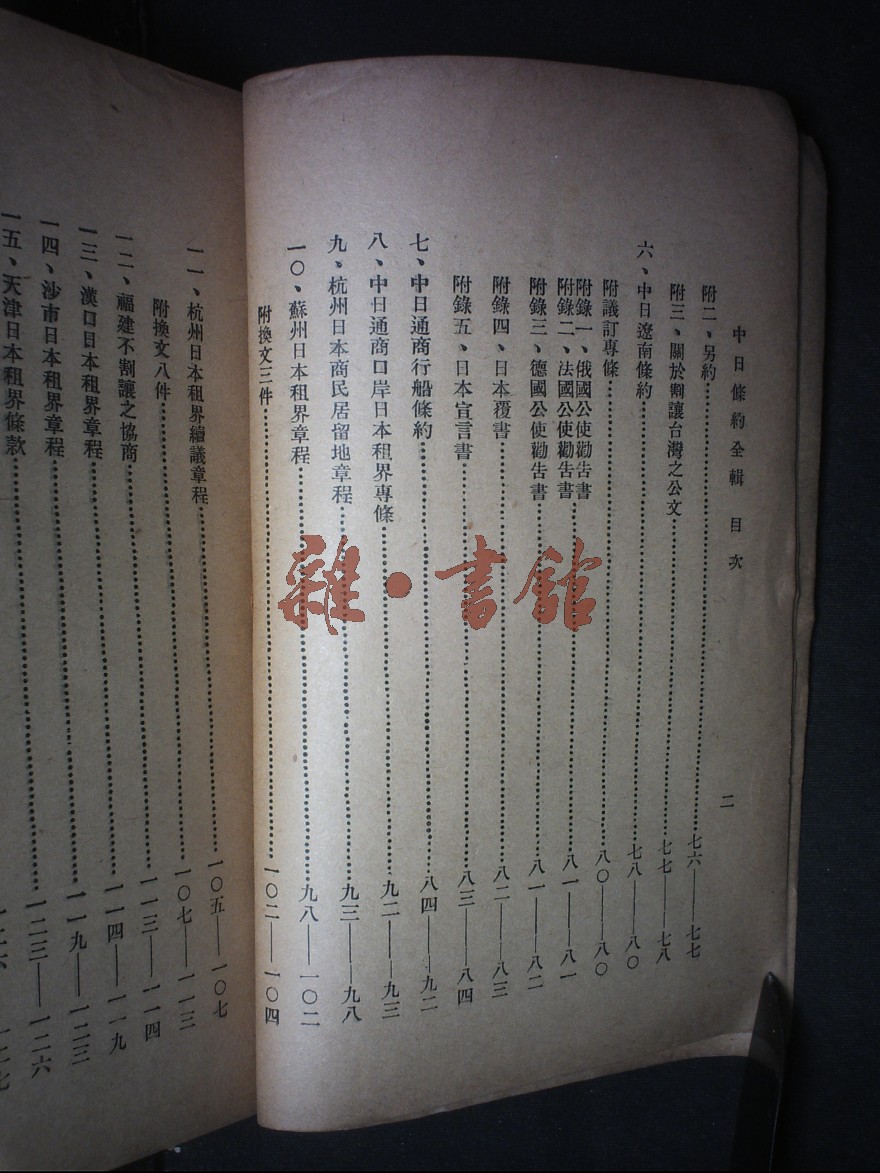 中日條約全輯 目次 二
附二、另約……七六——七七
附三、關於割讓台灣之公文……七七——七八
六、中日遼南條約……七八——八〇
附議訂專條……八〇——八〇
附錄一、俄國公使勸告書
附錄二、法國公使勸告書……八一——八一
附錄三、德國公使勸告書……八一——八二
附錄四、日本覆書……八二——八三
附錄五、日本宣言書……八三——八四
七、中日通商行船條約……八四——九二
八、中日通商口岸日本租界專條……九二——九三
九、杭州日本商民居留地章程……九三——九八
一〇、蘇州日本租界章程……九八——一〇二
附換文三件……一〇二——一〇四
一一、杭州日本租界續議章程……一〇五——一〇七
附換文八件……一〇七——一一三
一二、福建不割讓之協商……一一三——一一四
一三、漢口日本租界章程……一一四——一一九
一四、沙市日本租界章程……一一九——一二三
一五、天津日本租界條款……一二三——一二六
雜·書館